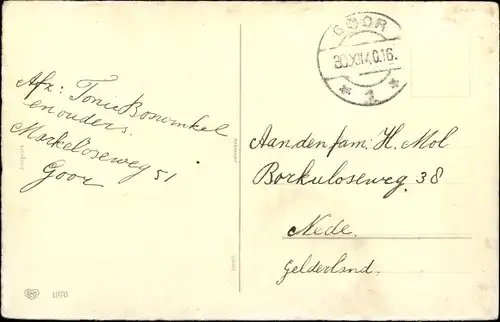 GOOR
30.XII.40.16.
* 1 *
Afz: Tonie Bonwinkel
en ouders.
Markeloseweg 51
Goor
Aan den fam: H. Mol
Borkuloseweg 38
Nede.
Gelderland.
1970